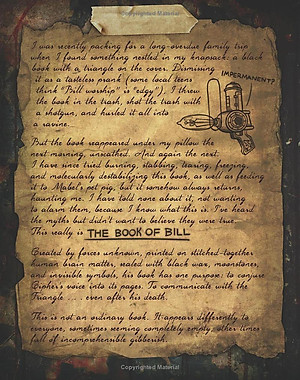 I was recently packing for a long-overdue family trip
when I found something nestled in my knapsack: a black
book with a triangle on the cover. Dismissing
it as a tasteless prank (some local teens
think "Bill worship" is "edgy"), I threw
the book in the trash, shot the trash with
a shotgun, and hurled it all into
a ravine.
IMPERMANENT?
But the book reappeared under my pillow the
next morning, unscathed. And again the next.
I have since tried burning, stabbing, tearing, freezing,
and molecularly destabilizing this book, as well as feeding
it to Mabel's pet pig, but it somehow always returns,
haunting me. I have told none about it, not wanting
to alarm them, because I know what this is. I've heard
the myths but didn't want to believe they were true...
This really is THE BOOK OF BILL
Created by forces unknown, printed on stitched-together
human brain matter, sealed with black wax, moonstones,
and invisible symbols, his book has one purpose: to conjure
Cipher's voice into its pages. To communicate with the
Triangle .... even after his death.
This is not an ordinary book. It appears differently to
everyone, sometimes seeming completely empty, other times
full of incomprehensible gibberish.
Copyrighted Material